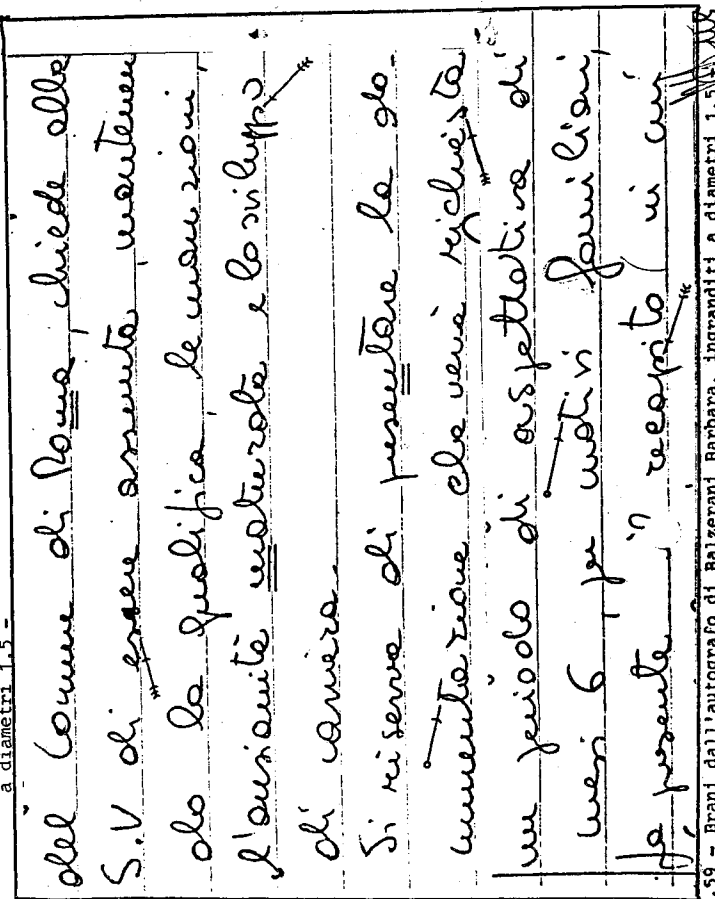 a diametri 1.5 -
del Comune di Roma, chiede alla
S.V di essere assunta, mantenen
do la qualifica, le mansioni,
l'anzianità maturata e lo sviluppo
di carriera.
Si riserva di presentare la do-
cumentazione che verrà richiesta
un periodo di aspettativa di
mesi 6 per motivi familiari,
fa presente il recapito in cui
.59 - Brani dall'autografo di Balzerani Barbara, ingranditi a diametri 1.5